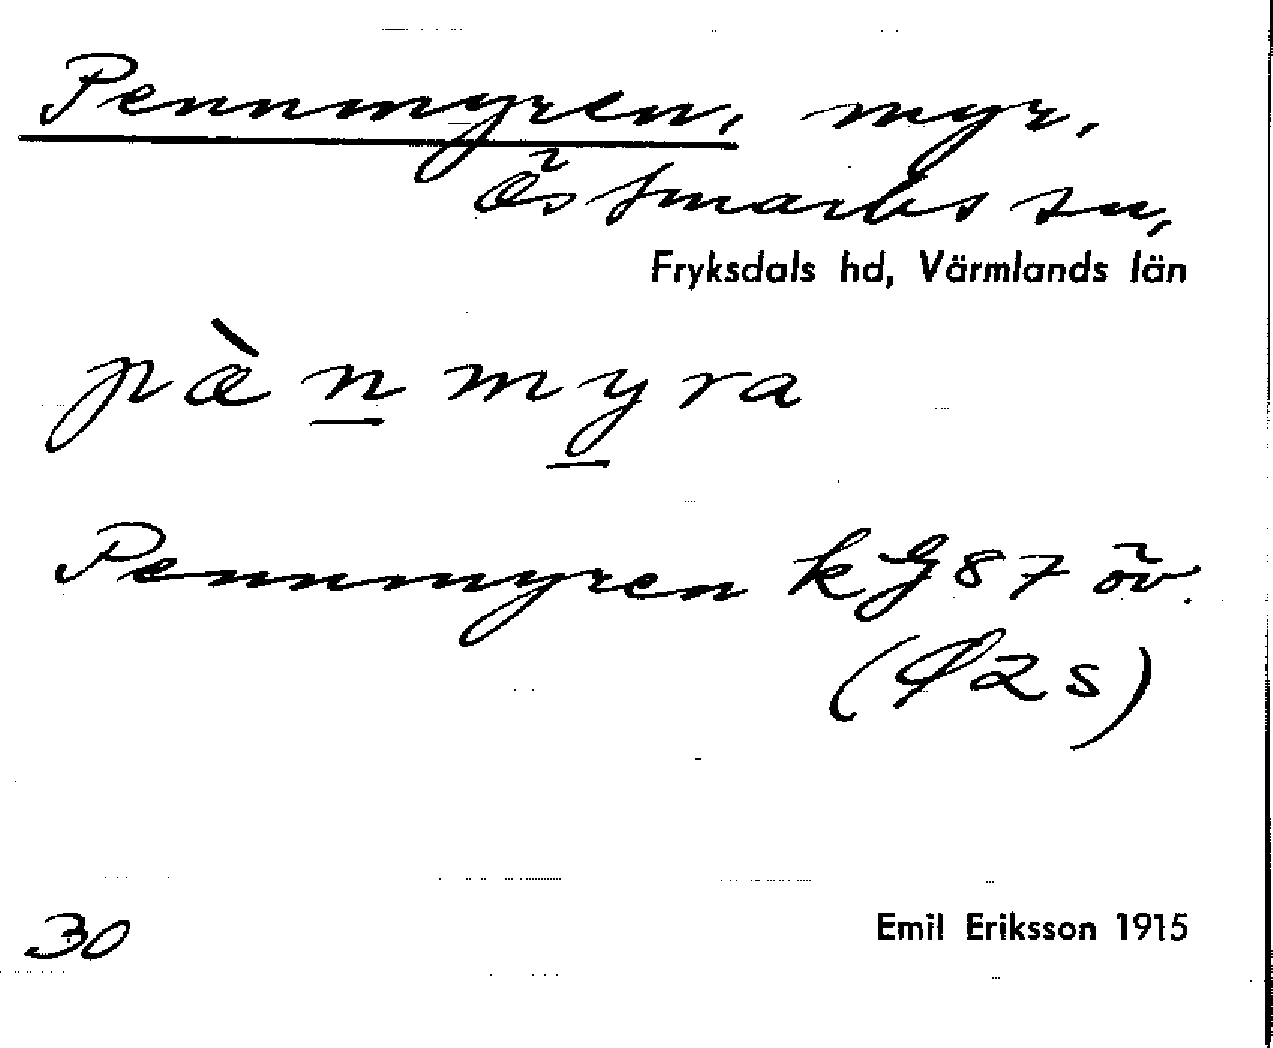 Pennmyren, myr,
Östmarks sn,
Fryksdals hd, Värmlands län
pæ̀nmyra
Pennmyren kG 87 öv.
2s)
30
Emil Eriksson 1915